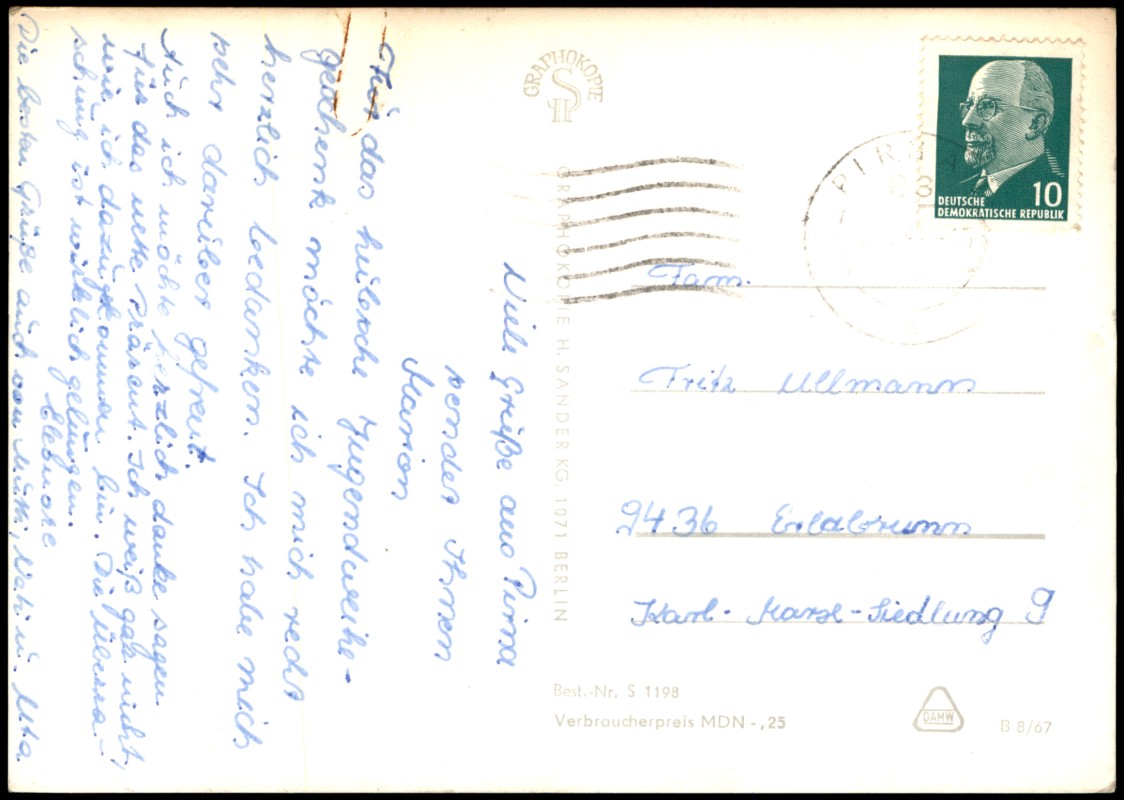 Für das hübsche Jugendweihe-
geschenk möchte ich mich recht
herzlich bedanken. Ich habe mich
sehr darüber gefreut.
Auch ich möchte herzlich danke sagen
für das nette Präsent. Ich weiß gar nicht,
wie ich dazugekommen bin. Die Überra-
schung ist wirklich gelungen.
Die besten Grüße auch von Mutti, u. Uta
Viele Grüße aus Pirna
sendet Ihnen
Marion
GRAPHOKOPIE
GRAPHOKOPIE H. SANDER KG, 1071 BERLIN
PIRNA
10
DEUTSCHE
DEMOKRATISCHE REPUBLIK
Fam.
Fritz Ullmann
9436 Erlabrunn
Karl-Marx-Siedlung 9
Best.-Nr. S 1198
Verbraucherpreis MDN -,25
DAMW
B 8/67